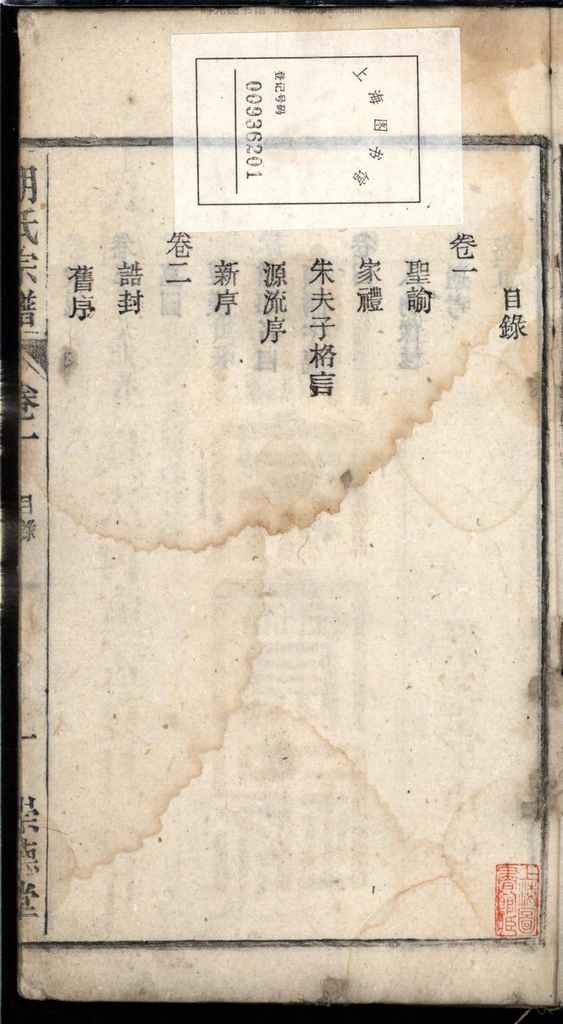 上海图书馆
登记号码
00936201
目錄
卷一
聖諭
家禮
朱夫子格言
源流序
新序
卷二
誥封
舊序
胡氏宗譜
卷一
目錄
一
崇德堂
上海圖書館藏